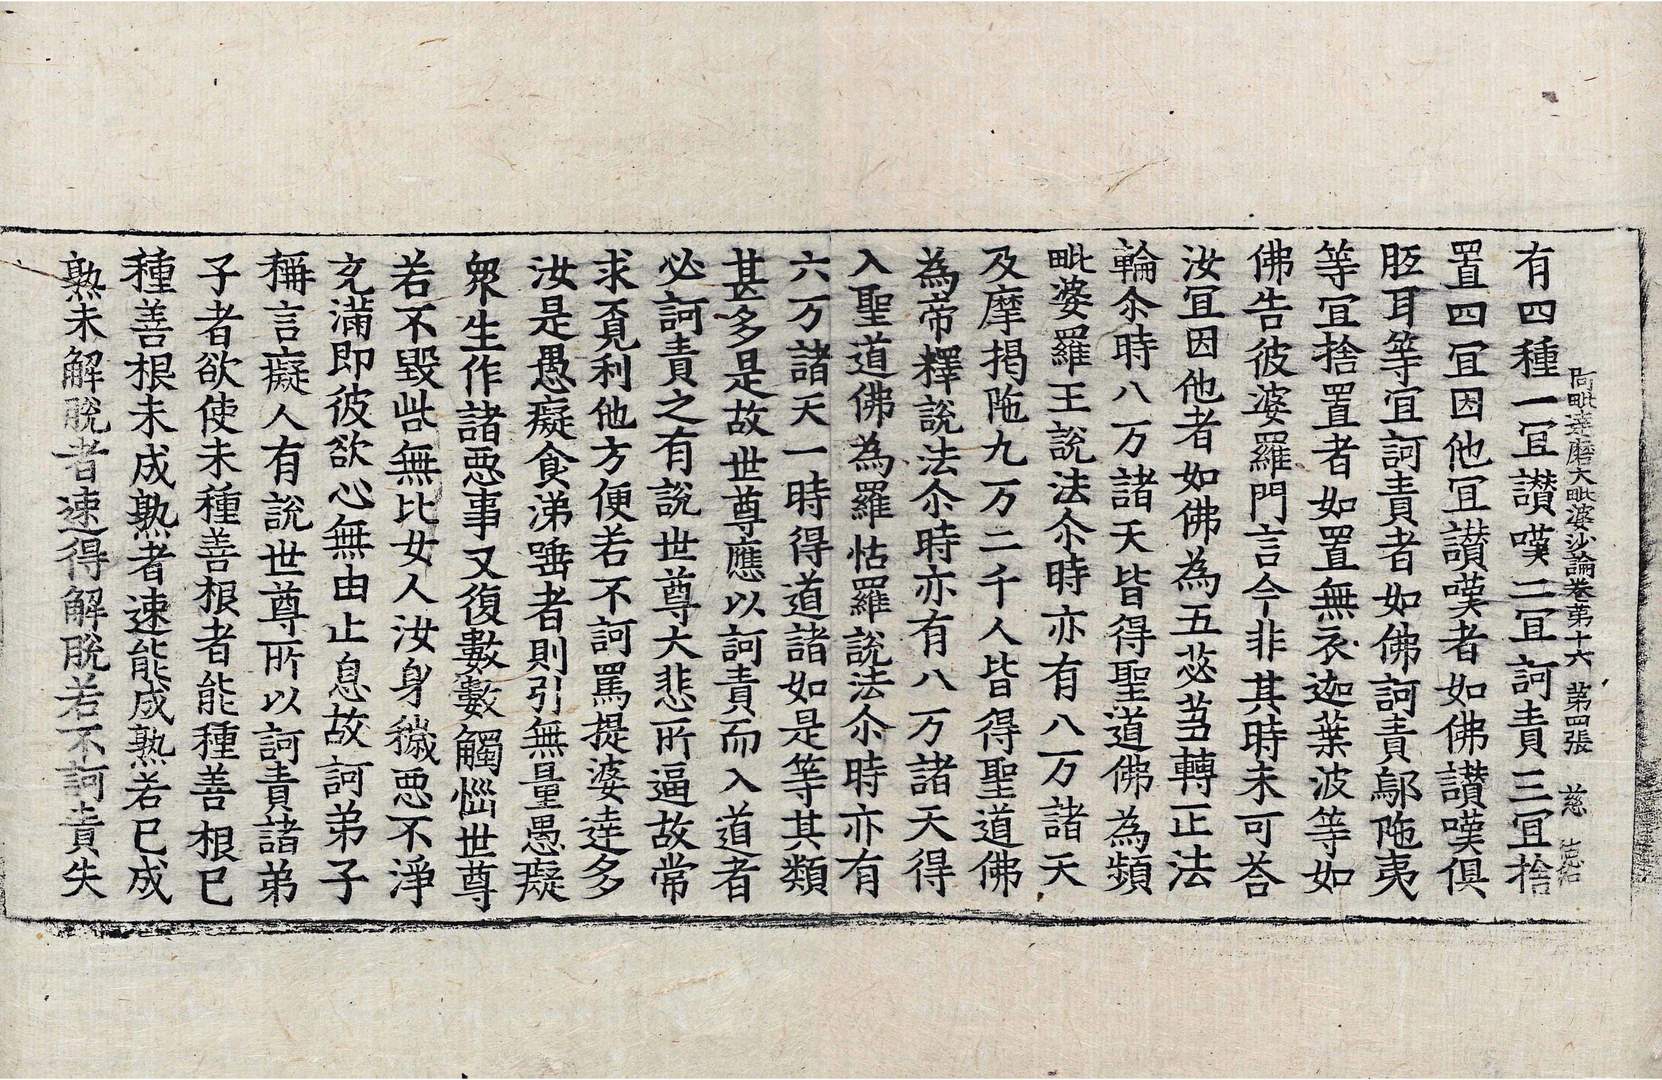 阿毗達磨大毗婆沙論卷第十六　第四張　慈
有四種一冝讃嘆二冝訶責三冝捨
置四冝因他冝讃嘆者如佛讃嘆俱
胝耳等冝訶責者如佛訶責鄔陁夷
等冝捨置者如置無衣迦葉波等如
佛告彼婆羅門言今非其時未可荅
汝冝因他者如佛為五苾芻轉正法
輪尒時八万諸天皆得聖道佛為頻
毗婆羅王說法尒時亦有八万諸天
及摩揭陁九万二千人皆得聖道佛
為帝釋說法尒時亦有八万諸天得
入聖道佛為羅怙羅說法尒時亦有
六万諸天一時得道諸如是等其類
甚多是故世尊應以訶責而入道者
必訶責之有說世尊大悲所逼故常
求覔利他方便若不訶罵提婆達多
汝是愚癡食涕唾者則引無量愚癡
衆生作諸惡事又復數數觸惱世尊
若不毀呰無比女人汝身穢惡不淨
充滿即彼欲心無由止息故訶弟子
稱言癡人有說世尊所以訶責諸弟
子者欲使未種善根者能種善根已
種善根未成熟者速能成熟若已成
熟未解脫者速得解脫若不訶責失